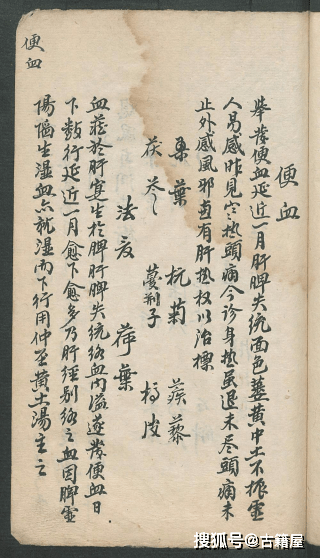 便血
舉發便血延近一月肝脾失統面色萎黃中土不振虛
人易感昨見寒热頭痛今診身热虽退未尽頭痛未
止外感風邪有肝热权以治標
桑葉 杭菊 蒺藜
茯苓 蔓荆子 橘皮
法夏 荷葉
血藏於肝實生於脾肝脾失統絡血内溢遂發便血日
下数行延近一月愈下愈多乃肝經别絡之血因脾虛
陽陷生湿血亦就湿而下行用仲圣黄土湯主之
便血
搜狐号@古籍屋